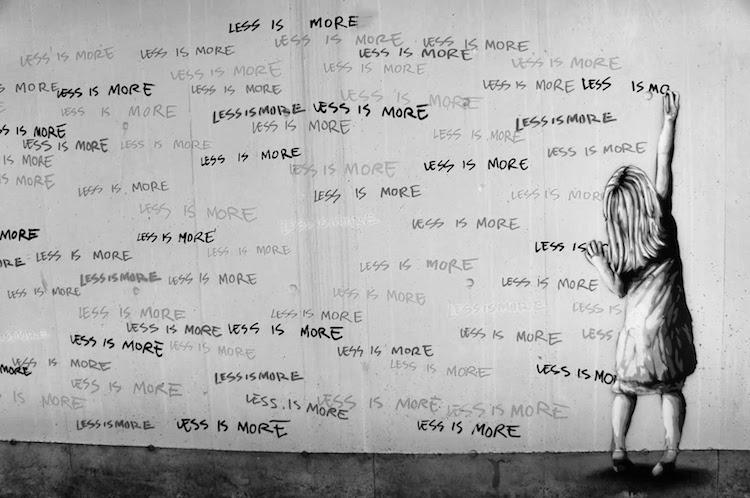 LESS IS MORE
LESS IS MORE
LESS IS MORE
LESS IS MORE
LESS IS MORE
LESS IS MORE
LESS IS MORE
LESS IS MORE
LESS IS MORE
S MORE
LESS IS MORE
LESS IS MORE
LESS IS MORE
LESS IS MO
LESS IS MORE
LESS IS MORE
LESS IS MORE
LESS IS MORE
LESS IS MORE
LESS IS MORE
SS IS MORE
LESS IS MORE
LESS IS MORE
LESS IS MORE
LESS IS MORE
IS MORE
LESS IS MORE
LESS IS MORE
LESS IS MORE
S MORE
LESS IS MORE
LESS IS MORE
LESS IS MORE
LESS IS MORE
LESS IS MORE
LESS IS MORE
MORE
LESS IS MORE
LESS IS
LESS IS MORE
LESS IS MORE
RE
LESS IS MORE
LESS IS MORE
LESS IS MORE
LESS IS MORE
LESS IS MORE
LESS IS MORE
LESS IS MORE
LESS
LESS IS MORE
LESS IS MORE
LESS IS MORE
LESS IS MORE
LESS IS MORE
LESS
LESS IS MORE
LESS IS MORE
LESS IS MORE
LESS IS MORE
MORE
LESS IS MORE
LESS IS MO
LESS IS MORE
LESS IS MORE
IS MORE
LESS IS MORE
LESS IS MORE
LESS IS MORE
LESS IS MORE
LESS IS MORE
LESS IS MORE